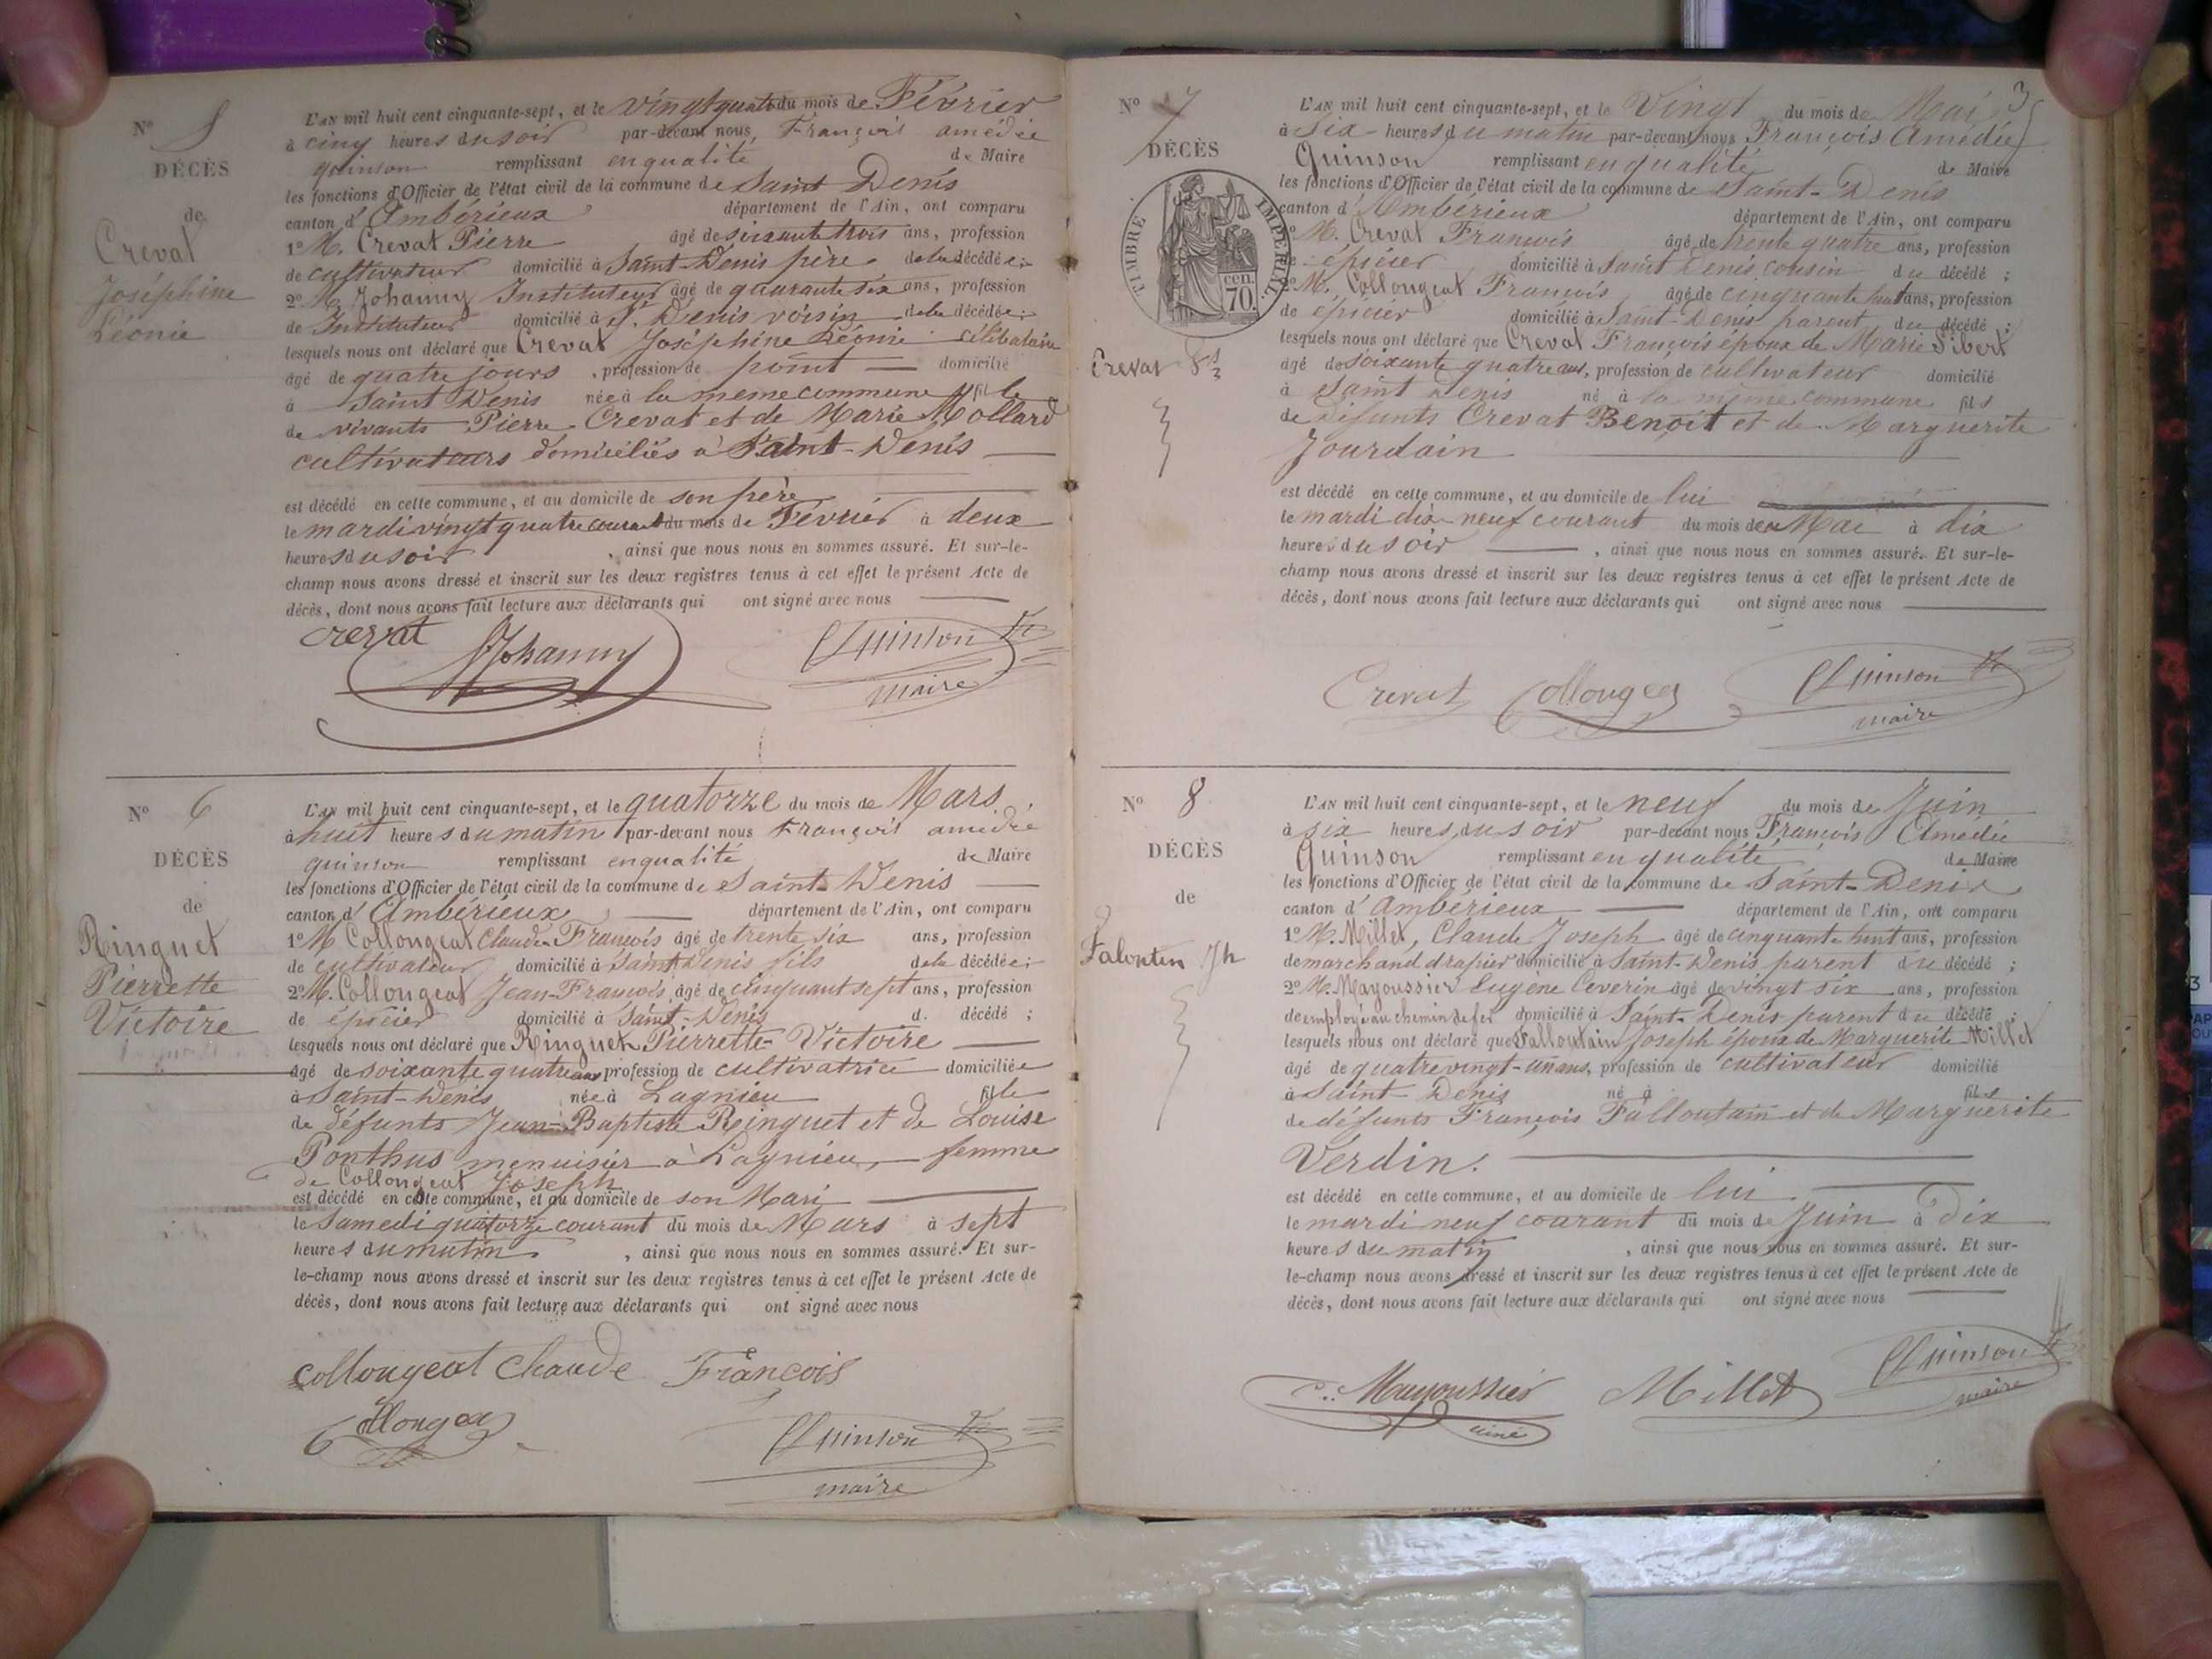 N° 5
DÉCÈS
de
Creval
Joséphine
Léonie
L'AN mil huit cent cinquante-sept, et le vingt quatre du mois de Février
à cinq heures du soir par-devant nous, François amédée
quinson remplissant en qualité de Maire
les fonctions d'Officier de l'état civil de la commune de Saint Denis
canton d'Ambérieux département de l'Ain, ont comparu
1° M. Creval Pierre âgé de soixante trois ans, profession
de cultivateur domicilié à Saint-Denis père de la décédée;
2° M. Johanny Instituteur âgé de quarante six ans, profession
de Instituteur domicilié à S. Denis voisin de la décédée;
lesquels nous ont déclaré que Creval Joséphine Léonie célibataire
âgé de quatre jours, profession de point — domicilié
à Saint Denis née à la meme commune fille
de vivants Pierre Creval et de Marie Mollard
cultivateurs domiciliés à Saint-Denis —
est décédé en cette commune, et au domicile de son père
le mardi vingt quatre courant du mois de Février à deux
heures du soir, ainsi que nous nous en sommes assuré. Et sur-le-
champ nous avons dressé et inscrit sur les deux registres tenus à cet effet le présent Acte de
décès, dont nous avons fait lecture aux déclarants qui ont signé avec nous —
creval Johanny Quinson
maire
N° 6
DÉCÈS
de
Ringuet
Pierrette
Victoire
L'AN mil huit cent cinquante-sept, et le quatorze du mois de Mars
à huit heures du matin par-devant nous François amédée
quinson remplissant en qualité de Maire
les fonctions d'Officier de l'état civil de la commune de Saint-Denis —
canton d'Ambérieux — département de l'Ain, ont comparu
1° M. Collongeat Claude François âgé de trente six ans, profession
de cultivateur domicilié à Saint Denis fils de la décédée;
2° M. Collongeat Jean-François, âgé de cinquant sept ans, profession
de épicier domicilié à Saint-Denis d. décédé ;
lesquels nous ont déclaré que Ringuet Pierrette-Victoire —
âgé de soixante quatre ans profession de cultivatrice domiciliée
à Saint-Denis née à Lagnieu fille
de défunts Jean-Baptiste Ringuet et de Louise
Ponthus menuisier à Lagnieu, — femme
de Collongeat Joseph
est décédé en cette commune, et au domicile de son Mari —
le Samedi quatorze courant du mois de Mars à sept
heures du matin, ainsi que nous nous en sommes assuré. Et sur-
le-champ nous avons dressé et inscrit sur les deux registres tenus à cet effet le présent Acte de
décès, dont nous avons fait lecture aux déclarants qui ont signé avec nous
Collongeat Claude François
Collongeat Quinson
maire
3
N° 7
DÉCÈS
TIMBRE IMPERIAL
70 cen.
Creval
L'AN mil huit cent cinquante-sept, et le Vingt du mois de Mai
à Six heures du matin par-devant nous François Amédée
Quinson remplissant en qualité de Maire
les fonctions d'Officier de l'état civil de la commune de Saint-Denis
canton d'Ambérieux département de l'Ain, ont comparu
1° M. Creval François âgé de trente quatre ans, profession
de épicier domicilié à Saint Denis cousin du décédé ;
2° M. Collongeat François âgé de cinquante huit ans, profession
de épicier domicilié à Saint-Denis parent du décédé ;
lesquels nous ont déclaré que Creval François époux de Marie Sibert
âgé de soixante quatre ans, profession de cultivateur domicilié
à Saint Denis né à la même commune fils
de défunts Creval Benoît et de Marguerite
Jourdain —
est décédé en cette commune, et au domicile de lui —
le mardi dix-neuf courant du mois de Mai à dix
heures du soir —, ainsi que nous nous en sommes assuré. Et sur-le-
champ nous avons dressé et inscrit sur les deux registres tenus à cet effet le présent Acte de
décès, dont nous avons fait lecture aux déclarants qui ont signé avec nous —
Creval Collongeat Quinson
maire
N° 8
DÉCÈS
de
Falontin Jh
L'AN mil huit cent cinquante-sept, et le neuf du mois de Juin
à six heures du soir par-devant nous François Amédée
Quinson remplissant en qualité de Maire
les fonctions d'Officier de l'état civil de la commune de Saint-Denis
canton d'ambérieux — département de l'Ain, ont comparu
1° M. Millet, Claude Joseph âgé de cinquante huit ans, profession
de marchand drapier domicilié à Saint-Denis parent du décédé ;
2° M. Mayoussier Eugène Ceverin âgé de vingt six ans, profession
de employé au chemin de fer domicilié à Saint-Denis parent du décédé ;
lesquels nous ont déclaré que Falloutain Joseph époux de Marguerite Millet
âgé de quatre vingt-un ans, profession de cultivateur domicilié
à Saint Denis né à fils
de défunts François Falloutain et de Marguerite
Verdin. —
est décédé en cette commune, et au domicile de lui. —
le mardi neuf courant du mois de Juin à dix
heures du matin, ainsi que nous nous en sommes assuré. Et sur-
le-champ nous avons dressé et inscrit sur les deux registres tenus à cet effet le présent Acte de
décès, dont nous avons fait lecture aux déclarants qui ont signé avec nous —
Mayoussier Millet Quinson
ainé maire